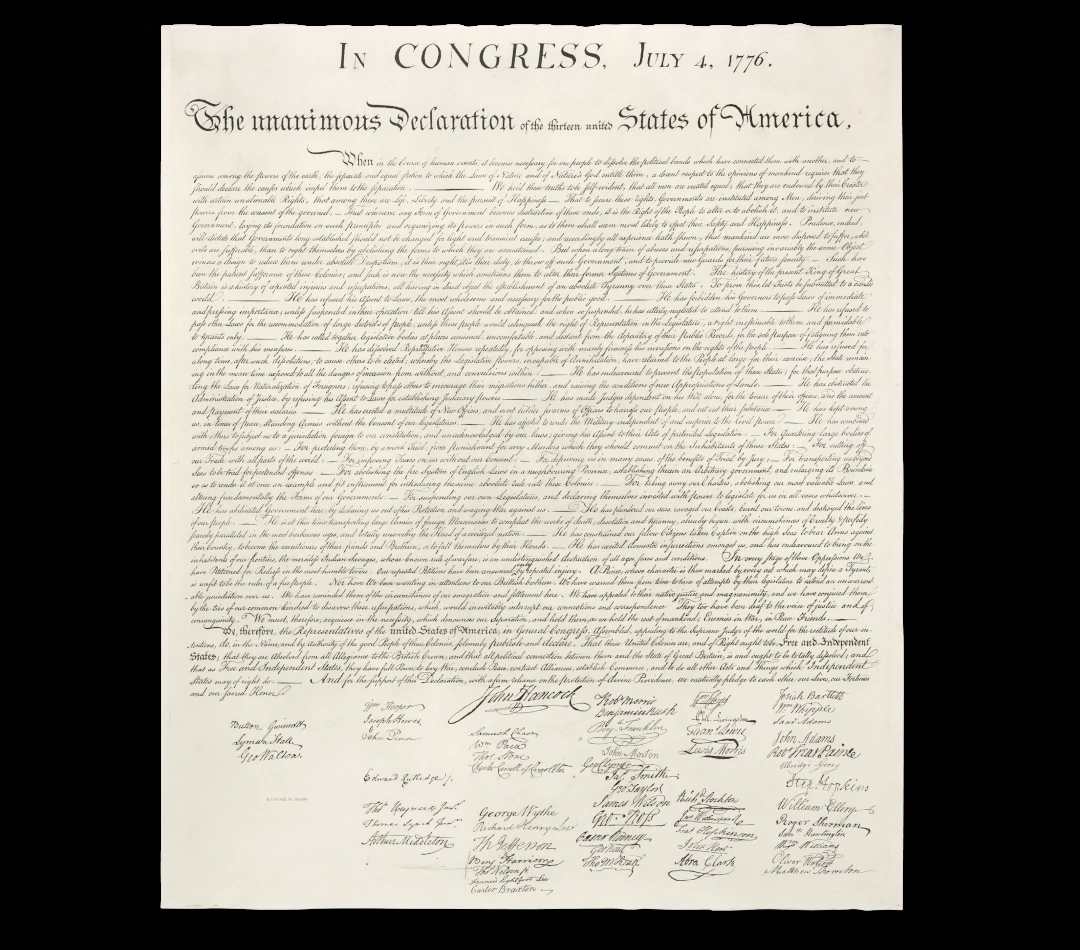 In CONGRESS, July 4, 1776.
The unanimous Declaration of the thirteen united States of America,
When in the Course of human events, it becomes necessary for one people to dissolve the political bands which have connected them with another, and to
assume among the powers of the earth, the separate and equal station to which the Laws of Nature and of Nature's God entitle them, a decent respect to the opinions of mankind requires that they
should declare the causes which impel them to the separation. We hold these truths to be self-evident, that all men are created equal, that they are endowed by their Creator
with certain unalienable Rights, that among these are Life, Liberty and the pursuit of Happiness — That to secure these rights, Governments are instituted among Men, deriving their just
powers from the consent of the governed, — That whenever any Form of Government becomes destructive of these ends, it is the Right of the People to alter or to abolish it, and to institute new
Government, laying its foundation on such principles and organizing its powers in such form, as to them shall seem most likely to effect their Safety and Happiness. Prudence, indeed,
will dictate that Governments long established should not be changed for light and transient causes; and accordingly all experience hath shewn, that mankind are more disposed to suffer, while
evils are sufferable, than to right themselves by abolishing the forms to which they are accustomed. But when a long train of abuses and usurpations, pursuing invariably the same Object
evinces a design to reduce them under absolute Despotism, it is their right, it is their duty, to throw off such Government, and to provide new Guards for their future security. — Such has
been the patient sufferance of these Colonies; and such is now the necessity which constrains them to alter their former Systems of Government. The history of the present King of Great
Britain is a history of repeated injuries and usurpations, all having in direct object the establishment of an absolute Tyranny over these States. To prove this, let Facts be submitted to a candid
world. He has refused his Assent to Laws, the most wholesome and necessary for the public good. He has forbidden his Governors to pass Laws of immediate
and pressing importance, unless suspended in their operation till his Assent should be obtained; and when so suspended, he has utterly neglected to attend to them. He has refused to
pass other Laws for the accommodation of large districts of people, unless those people would relinquish the right of Representation in the Legislature, a right inestimable to them and formidable
to tyrants only. He has called together legislative bodies at places unusual, uncomfortable, and distant from the depository of their public Records, for the sole purpose of fatiguing them into
compliance with his measures. He has dissolved Representative Houses repeatedly, for opposing with manly firmness his invasions on the rights of the people. He has refused for
a long time, after such dissolutions, to cause others to be elected; whereby the Legislative powers, incapable of Annihilation, have returned to the People at large for their exercise; the State remain-
ing in the mean time exposed to all the dangers of invasion from without, and convulsions within. He has endeavoured to prevent the population of these States; for that purpose obstruc-
ting the Laws for Naturalization of Foreigners; refusing to pass others to encourage their migrations hither, and raising the conditions of new Appropriations of Lands. He has obstructed the
Administration of Justice, by refusing his Assent to Laws for establishing Judiciary powers. He has made Judges dependent on his Will alone, for the tenure of their offices, and the amount
and payment of their salaries. He has erected a multitude of New Offices, and sent hither swarms of Officers to harrass our people, and eat out their substance. He has kept among
us, in times of peace, Standing Armies without the Consent of our legislatures. He has affected to render the Military independent of and superior to the Civil power. He has combined
with others to subject us to a jurisdiction foreign to our constitution, and unacknowledged by our laws; giving his Assent to their Acts of pretended Legislation: — For Quartering large bodies of
armed troops among us: — For protecting them, by a mock Trial, from punishment for any Murders which they should commit on the Inhabitants of these States: — For cutting off
our Trade with all parts of the world: — For imposing Taxes on us without our Consent: — For depriving us in many cases, of the benefits of Trial by Jury: — For transporting us beyond
Seas to be tried for pretended offences — For abolishing the free System of English Laws in a neighbouring Province, establishing therein an Arbitrary government, and enlarging its Boundaries
so as to render it at once an example and fit instrument for introducing the same absolute rule into these Colonies: — For taking away our Charters, abolishing our most valuable Laws, and
altering fundamentally the Forms of our Governments: — For suspending our own Legislatures, and declaring themselves invested with power to legislate for us in all cases whatsoever. —
He has abdicated Government here, by declaring us out of his Protection and waging War against us. He has plundered our seas, ravaged our Coasts, burnt our towns, and destroyed the lives
of our people. He is at this time transporting large Armies of foreign Mercenaries to compleat the works of death, desolation and tyranny, already begun with circumstances of Cruelty & perfidy
scarcely paralleled in the most barbarous ages, and totally unworthy the Head of a civilized nation. He has constrained our fellow Citizens taken Captive on the high Seas to bear Arms against
their Country, to become the executioners of their friends and Brethren, or to fall themselves by their Hands. He has excited domestic insurrections amongst us, and has endeavoured to bring on the
inhabitants of our frontiers, the merciless Indian Savages, whose known rule of warfare, is an undistinguished destruction of all ages, sexes and conditions. In every stage of these Oppressions We
have Petitioned for Redress in the most humble terms: Our repeated Petitions have been answered only by repeated injury. A Prince, whose character is thus marked by every act which may define a Tyrant,
is unfit to be the ruler of a free people. Nor have We been wanting in attentions to our Brittish brethren. We have warned them from time to time of attempts by their legislature to extend an unwarrant-
able jurisdiction over us. We have reminded them of the circumstances of our emigration and settlement here. We have appealed to their native justice and magnanimity, and we have conjured them
by the ties of our common kindred to disavow these usurpations, which, would inevitably interrupt our connections and correspondence. They too have been deaf to the voice of justice and of
consanguinity. We must, therefore, acquiesce in the necessity, which denounces our Separation, and hold them, as we hold the rest of mankind, Enemies in War, in Peace Friends.
We, therefore, the Representatives of the united States of America, in General Congress, Assembled, appealing to the Supreme Judge of the world for the rectitude of our in-
tentions, do, in the Name, and by Authority of the good People of these Colonies, solemnly publish and declare, That these United Colonies are, and of Right ought to be Free and Independent
States; that they are Absolved from all Allegiance to the British Crown, and that all political connection between them and the State of Great Britain, is and ought to be totally dissolved; and
that as Free and Independent States, they have full Power to levy War, conclude Peace, contract Alliances, establish Commerce, and to do all other Acts and Things which Independent
States may of right do. And for the support of this Declaration, with a firm reliance on the protection of divine Providence, we mutually pledge to each other our Lives, our Fortunes
and our sacred Honor.
Button Gwinnett
Lyman Hall
Geo Walton.
Wm Hooper
Joseph Hewes,
John Penn
Edward Rutledge /.
Thos Heyward Junr.
Thomas Lynch Junr.
Arthur Middleton
John Hancock
Samuel Chase
Wm Paca
Thos Stone
Charles Carroll of Carrollton
George Wythe
Richard Henry Lee
Th Jefferson
Benj Harrison
Thos Nelson jr.
Francis Lightfoot Lee
Carter Braxton
Robt Morris
Benjamin Rush
Benj. Franklin
John Morton
Geo Clymer
Jas. Smith
Geo. Taylor
James Wilson
Geo. Ross
Caesar Rodney
Geo Read
Tho M:Kean
Wm Floyd
Phil. Livingston
Frans. Lewis
Lewis Morris
Richd. Stockton
Jno Witherspoon
Fras. Hopkinson
John Hart
Abra Clark
Josiah Bartlett
Wm Whipple
Saml Adams
John Adams
Robt Treat Paine
Elbridge Gerry
Step. Hopkins
William Ellery
Roger Sherman
Saml Huntington
Wm Williams
Oliver Wolcott
Matthew Thornton